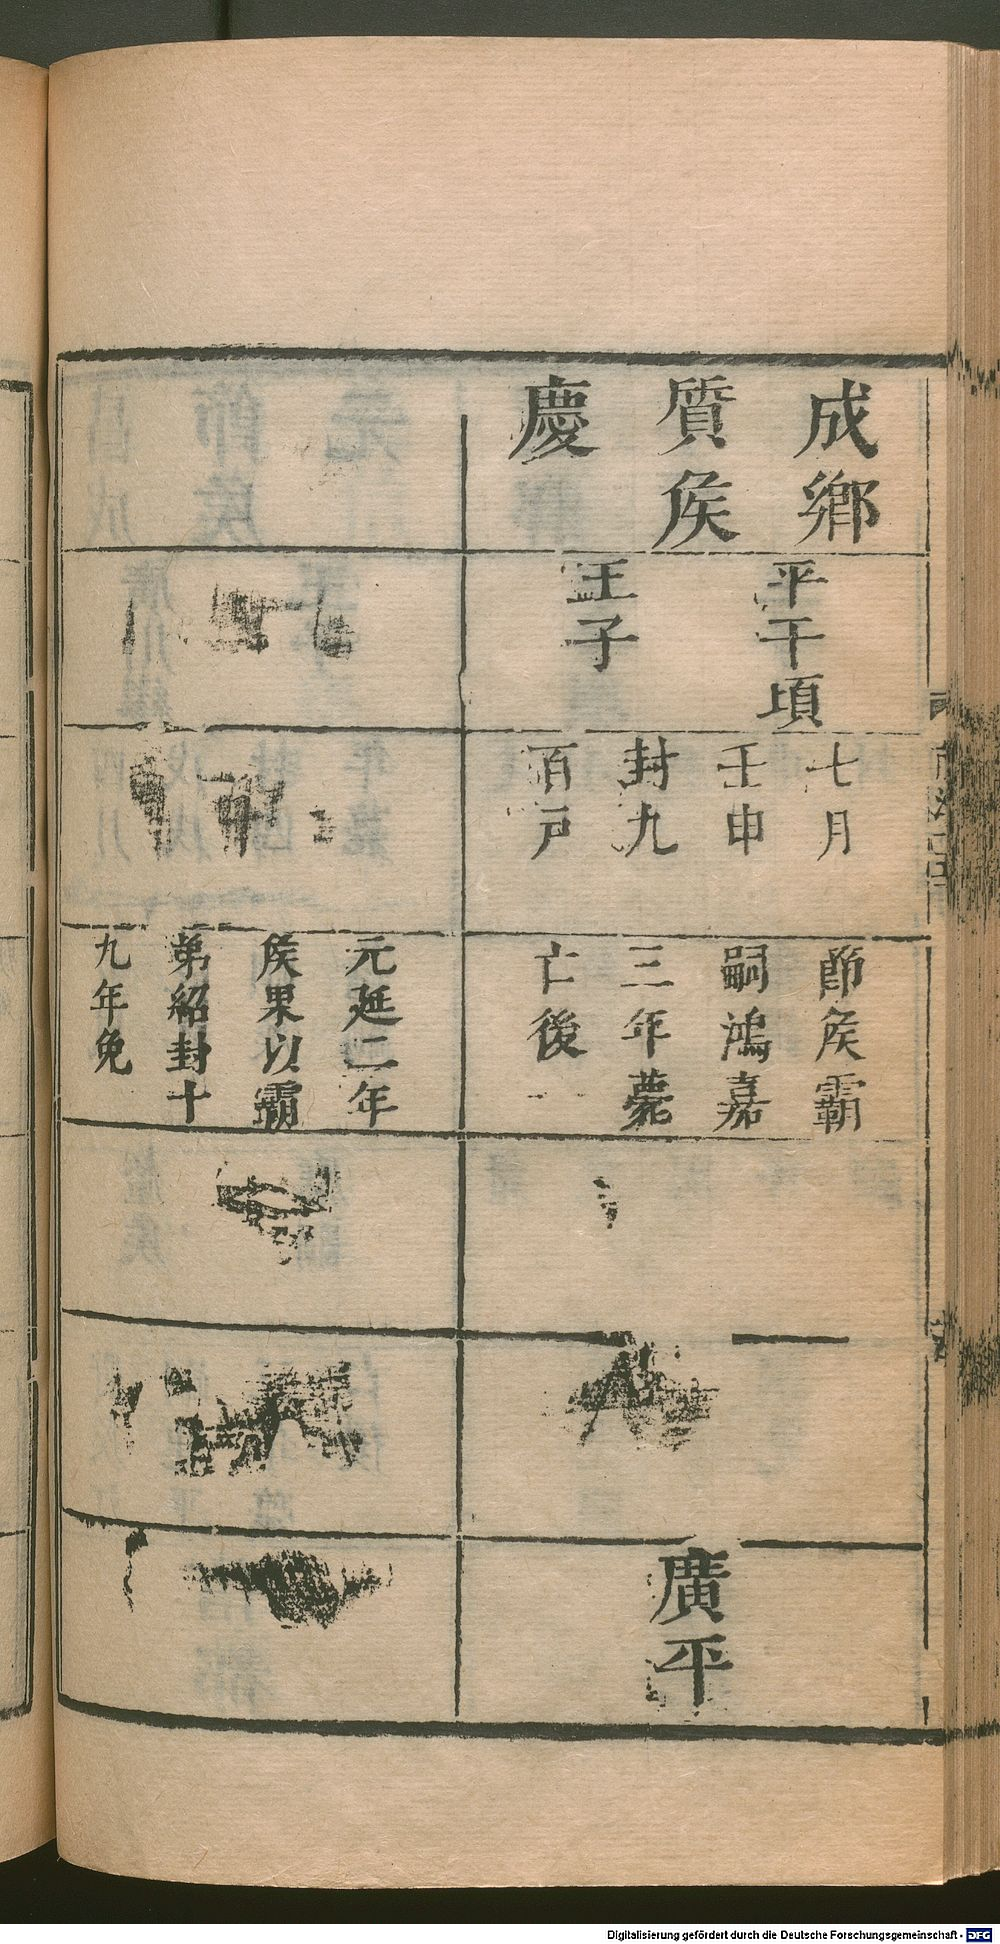 成鄉
質侯
慶
平干頃
王子
七月
壬申
封九
百戸
節侯霸
嗣鴻嘉
三年薨
亡後
元延二年
侯果以霸
弟紹封十
九年免
廣平
Digitalisierung gefördert durch die Deutsche Forschungsgemeinschaft - DFG